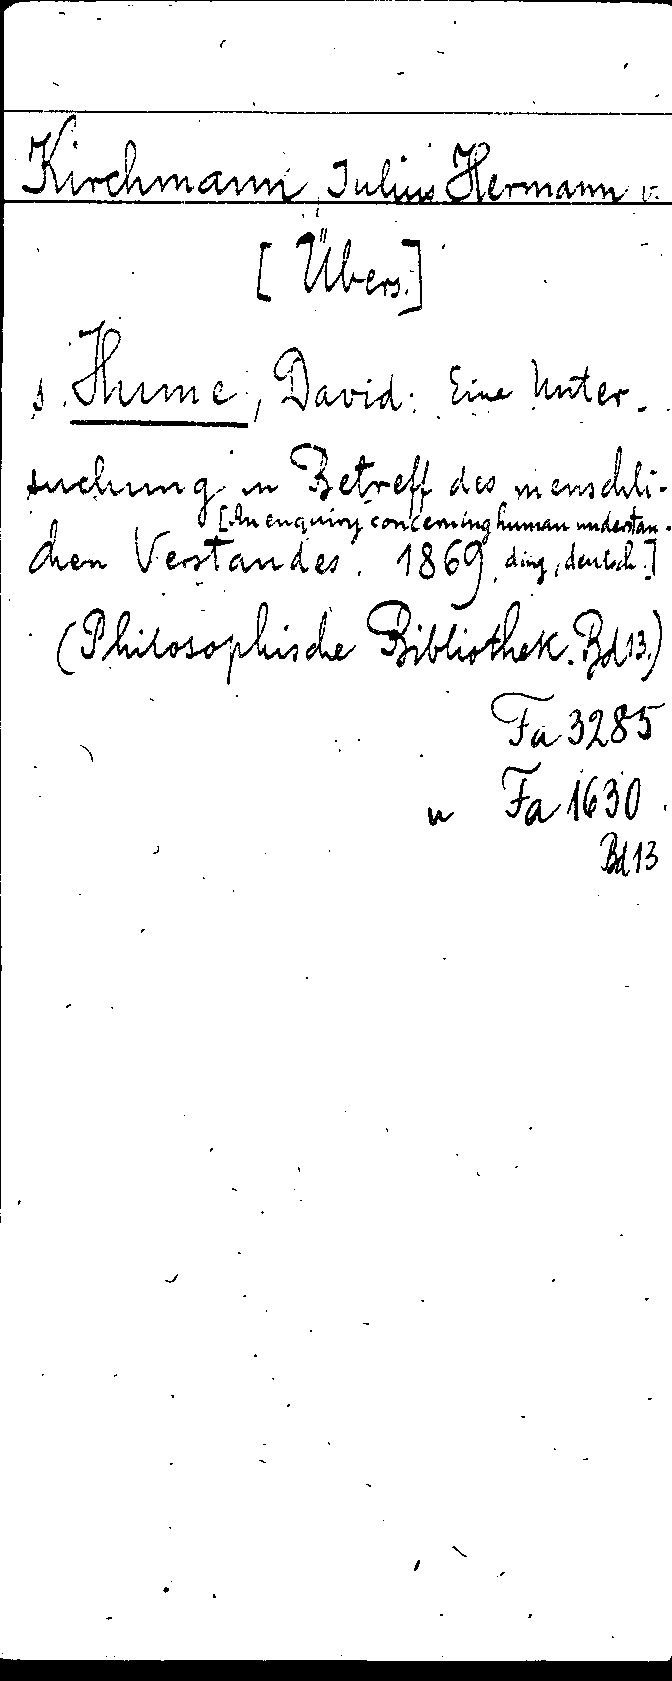 Kirchmann, Julius Hermann v.
[Übers.]
s. Hume, David: Eine Unter-
suchung in Betreff des menschli-
[An enquiry concerning human understan-
chen Verstandes. 1869. ding, deutsch.]
(Philosophische Bibliothek. Bd 13.)
Fa 3285
u Fa 1630
Bd 13